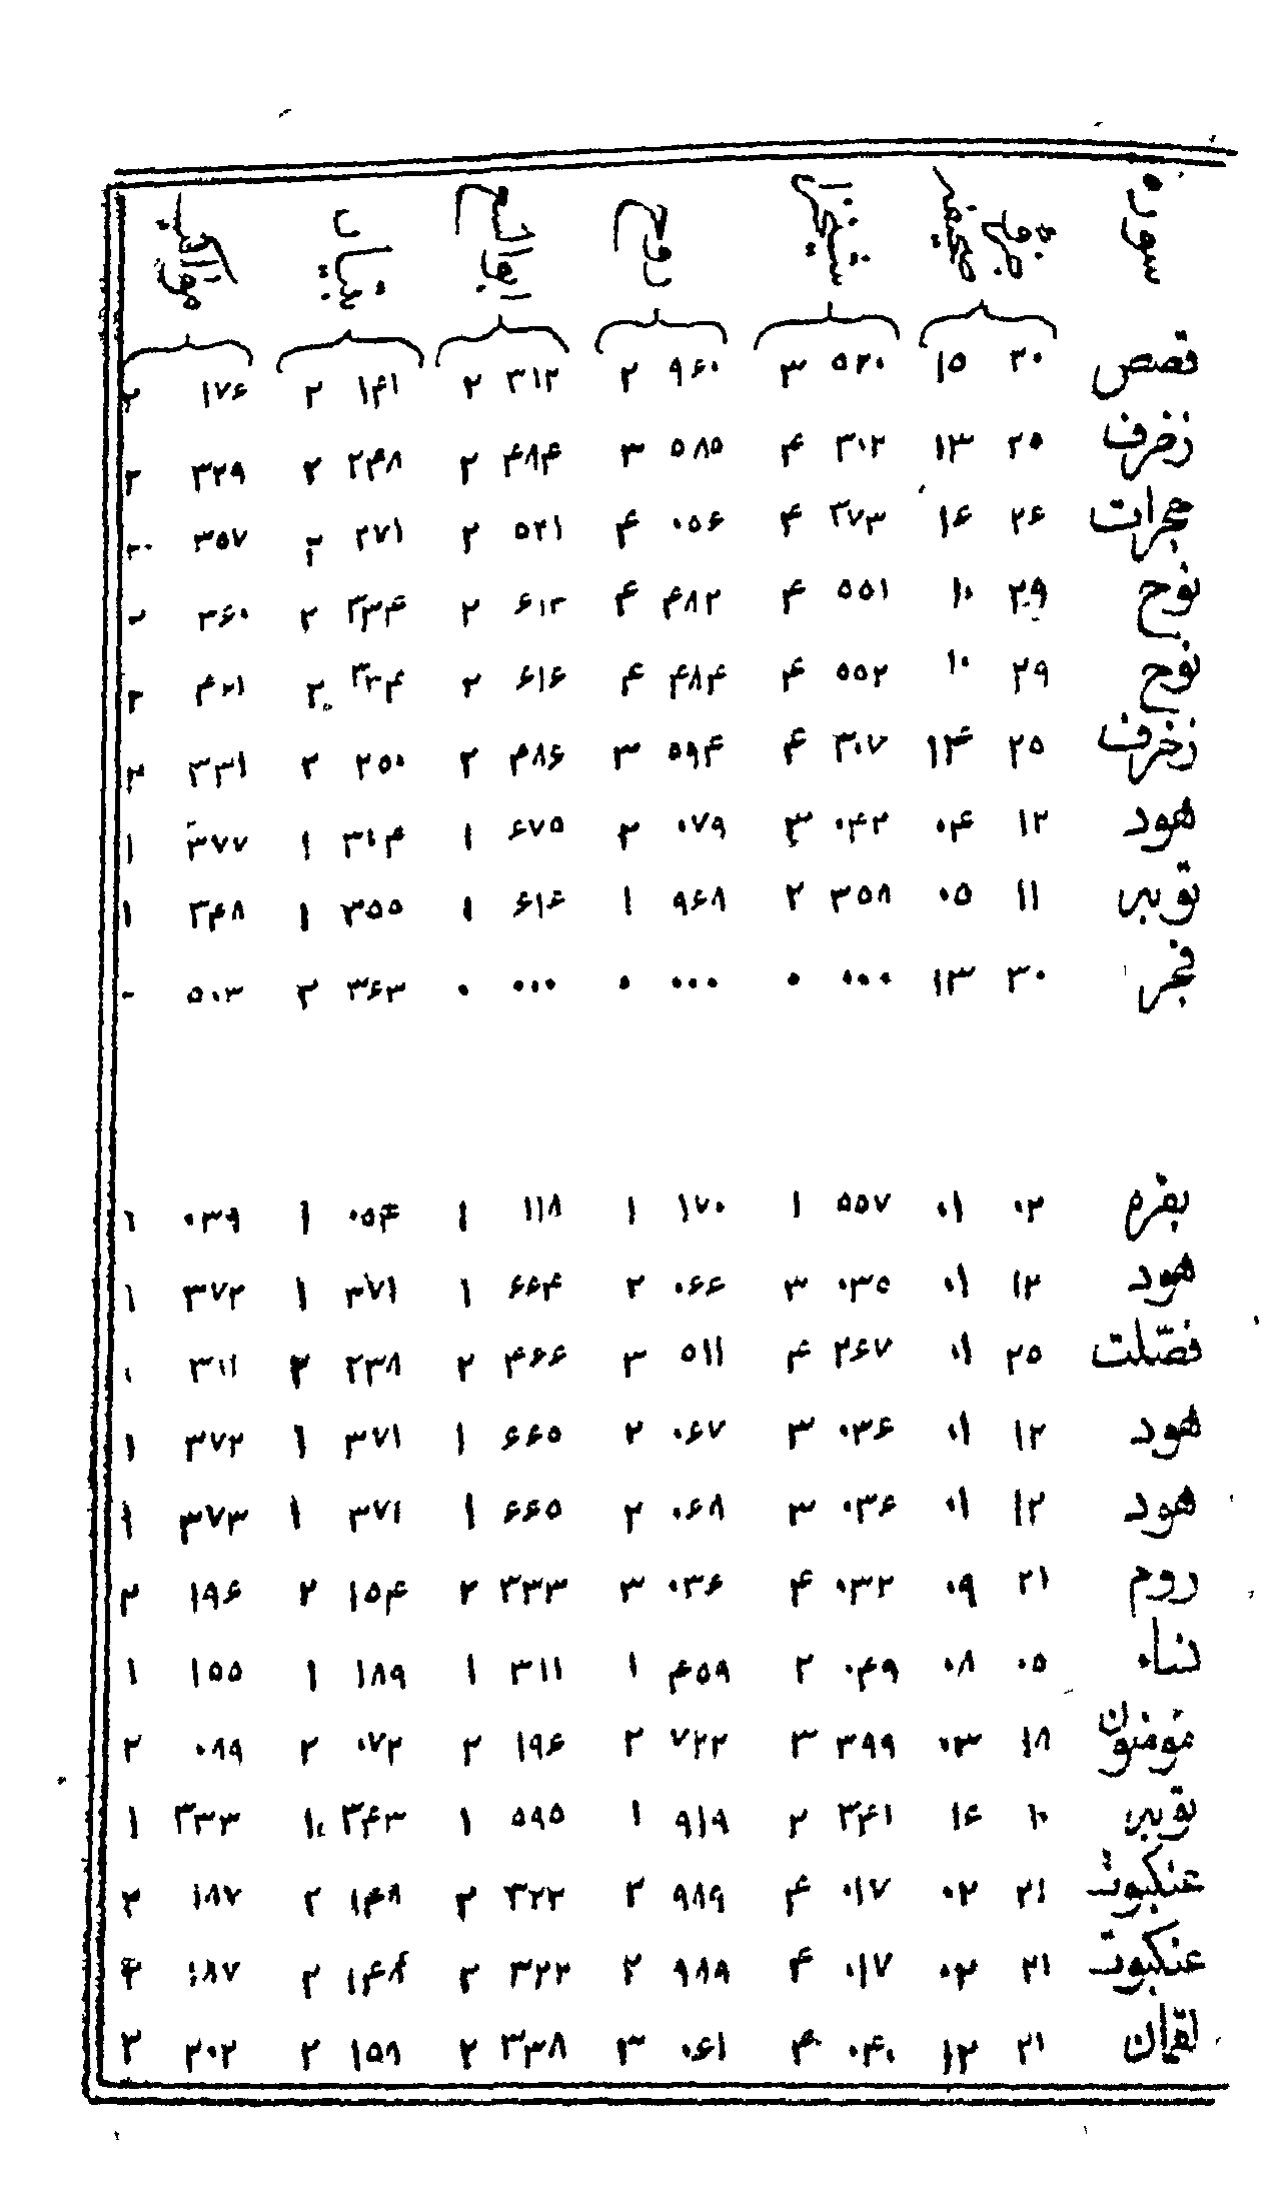 سوره
قصص ۲۰ ۱۵ ۵۲۰ ۳ ۹۶۰ ۲ ۳۱۲ ۲ ۱۴۱ ۲ ۱۷۶ ۲
زخرف ۲۵ ۱۳ ۳۰۲ ۴ ۵۸۵ ۳ ۴۸۴ ۲ ۲۴۸ ۲ ۳۲۹ ۲
حجرات ۲۶ ۱۶ ۳۷۳ ۴ ۰۵۶ ۴ ۵۲۱ ۲ ۲۷۱ ۲ ۳۵۷
نوح ۲۹ ۱۰ ۵۵۱ ۴ ۴۸۲ ۴ ۶۱۳ ۲ ۳۳۴ ۲ ۳۶۰
نوح ۲۹ ۱۰ ۵۵۲ ۴ ۴۸۴ ۴ ۶۱۶ ۲ ۳۳۴ ۲ ۴۲۱ ۲
زخرف ۲۵ ۱۴ ۳۰۷ ۴ ۵۹۴ ۳ ۴۸۶ ۲ ۲۵۰ ۲ ۳۳۱ ۲
هود ۱۲ ۰۴ ۰۴۲ ۳ ۰۷۹ ۲ ۶۷۵ ۱ ۳۱۴ ۱ ۳۷۷ ۱
توبه ۱۱ ۰۵ ۳۵۸ ۲ ۹۶۸ ۱ ۶۱۶ ۱ ۳۵۵ ۱ ۳۴۸ ۱
فجر ۳۰ ۱۳ ۰۰۰ ۰ ۰۰۰ ۰ ۰۰۰ ۰ ۳۶۳ ۲ ۵۰۳
بقره ۰۲ ۰۱ ۵۵۷ ۱ ۱۷۰ ۱ ۱۱۸ ۱ ۰۵۴ ۱ ۰۳۹ ۱
هود ۱۲ ۰۱ ۰۳۵ ۳ ۰۶۶ ۲ ۶۶۴ ۱ ۳۷۱ ۱ ۳۷۲ ۱
فصّلت ۲۵ ۰۱ ۲۶۷ ۴ ۵۱۱ ۳ ۴۶۶ ۲ ۲۳۸ ۲ ۳۱۱
هود ۱۲ ۰۱ ۰۳۶ ۳ ۰۶۷ ۲ ۶۶۵ ۱ ۳۷۱ ۱ ۳۷۲ ۱
هود ۱۲ ۰۱ ۰۳۶ ۳ ۰۶۸ ۲ ۶۶۵ ۱ ۳۷۱ ۱ ۳۷۳ ۱
روم ۲۱ ۰۹ ۰۳۲ ۴ ۰۳۶ ۳ ۳۳۳ ۲ ۱۵۴ ۲ ۱۹۶ ۲
نساء ۰۵ ۰۸ ۰۴۹ ۲ ۴۵۹ ۱ ۳۱۱ ۱ ۱۸۹ ۱ ۱۵۵ ۱
مؤمنون ۱۸ ۰۳ ۳۹۹ ۳ ۷۲۲ ۲ ۱۹۶ ۲ ۰۷۲ ۲ ۰۸۹ ۲
توبه ۱۰ ۱۶ ۳۴۱ ۲ ۹۱۹ ۱ ۵۹۵ ۱ ۳۴۳ ۱ ۳۳۳ ۱
عنکبوت ۲۱ ۰۲ ۰۱۷ ۴ ۹۸۹ ۲ ۳۲۲ ۲ ۱۴۸ ۲ ۱۸۷ ۲
عنکبوت ۲۱ ۰۲ ۰۱۷ ۴ ۹۸۹ ۲ ۳۲۲ ۲ ۱۴۸ ۲ ۱۸۷ ۲
لقمان ۲۱ ۱۲ ۰۴۰ ۴ ۰۶۱ ۳ ۳۳۸ ۲ ۱۵۹ ۲ ۲۰۲ ۲